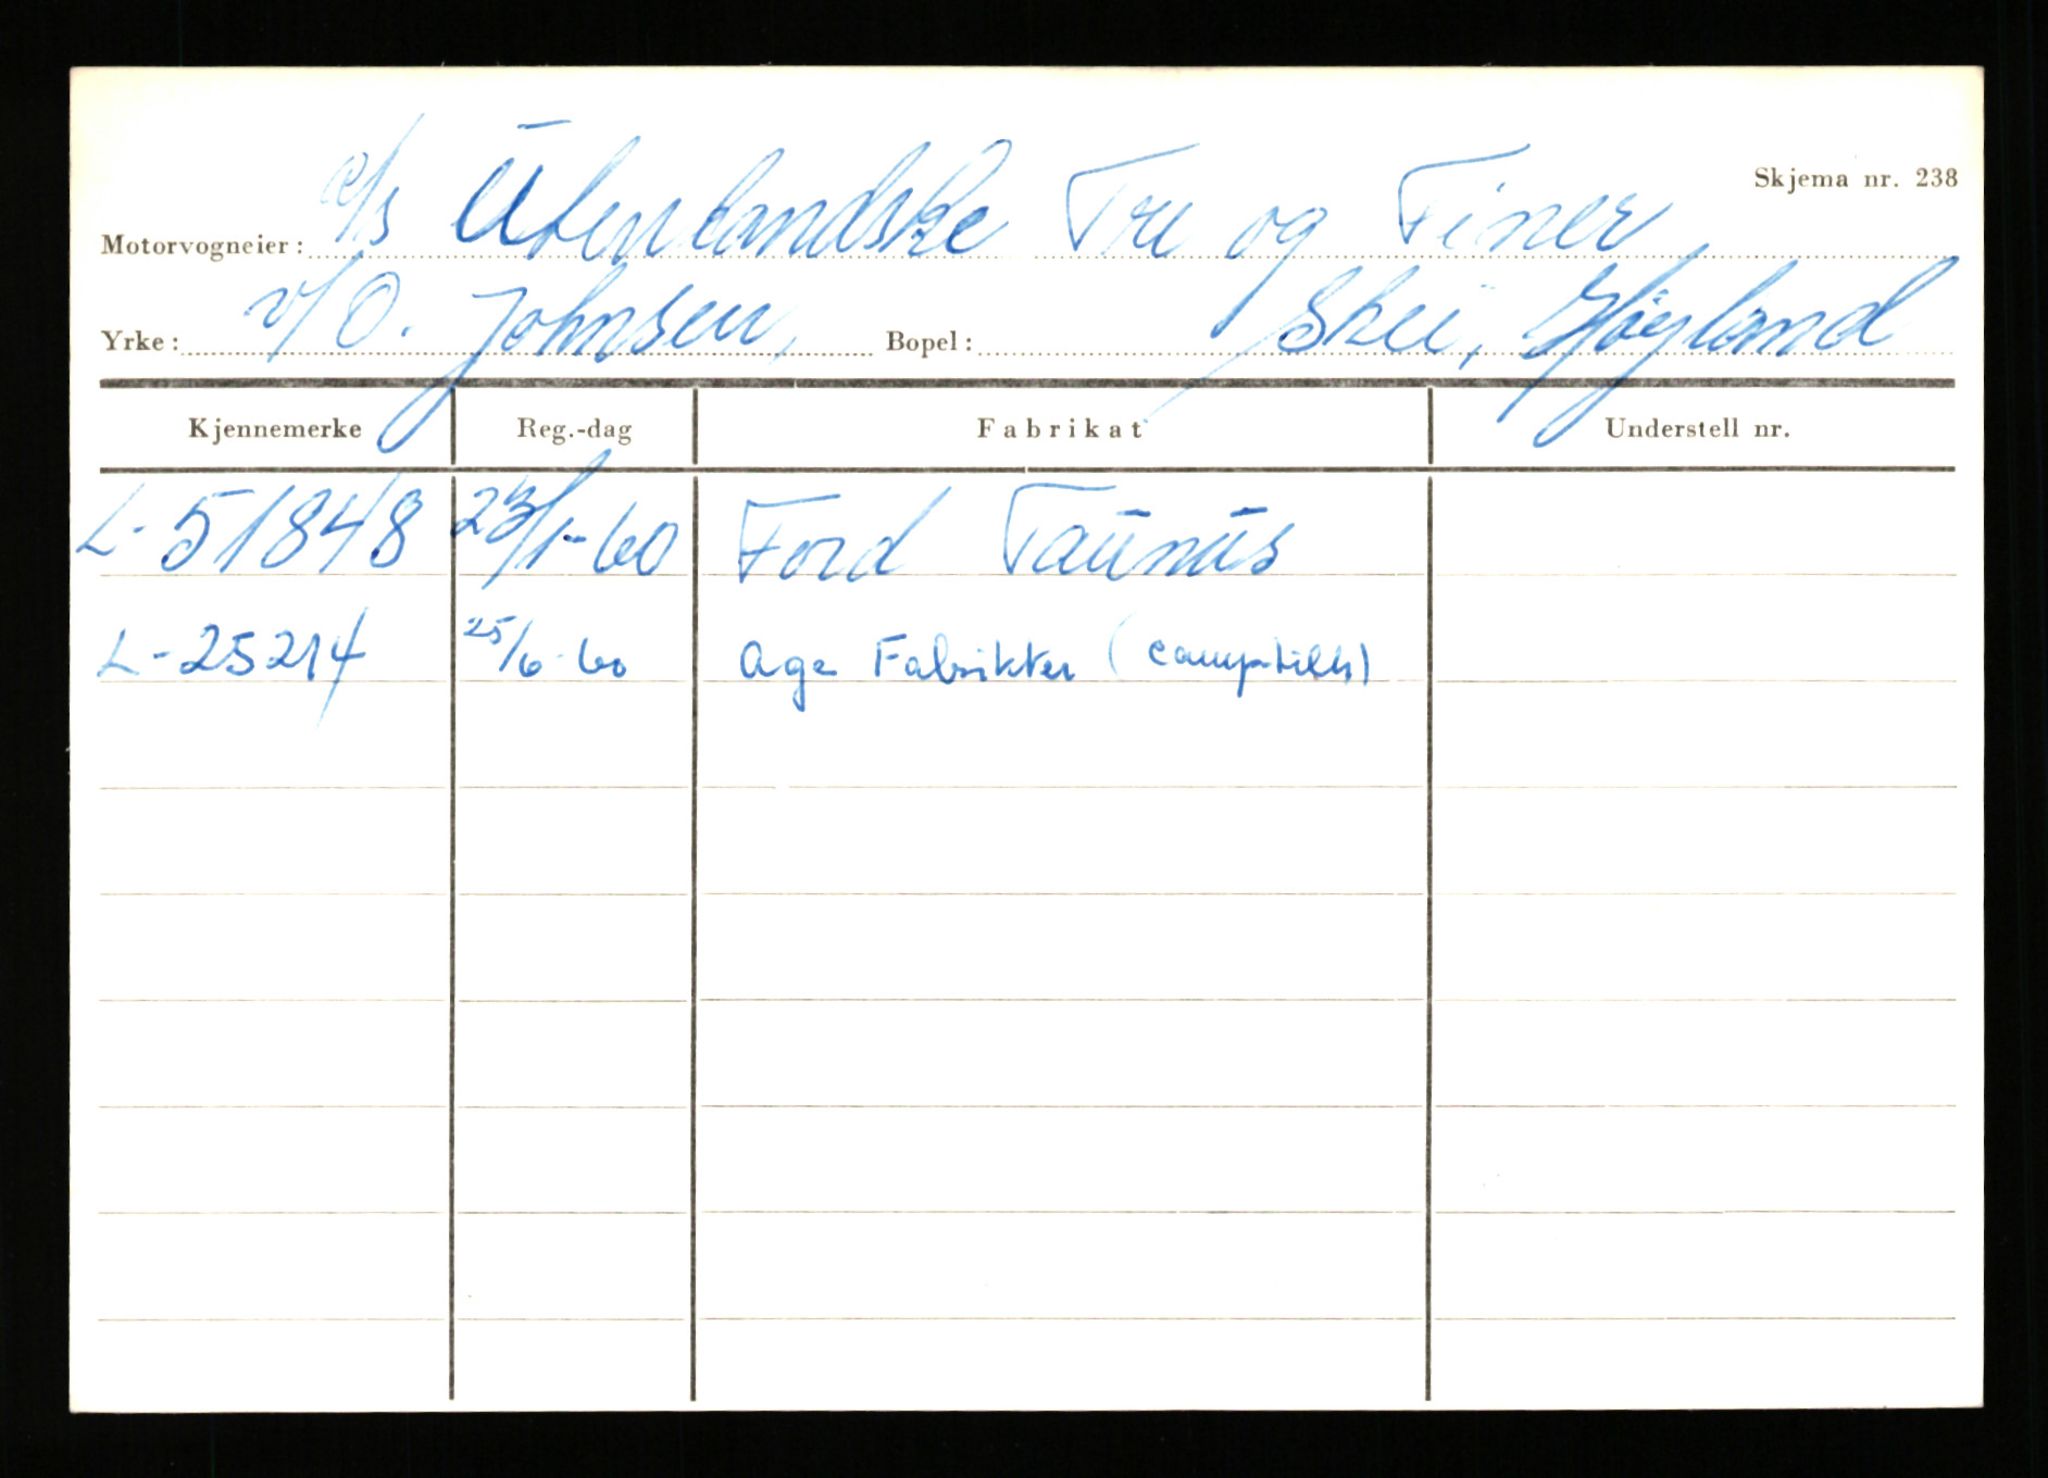 Skjema nr. 238
Motorvogneier: A/S Utenlandske Tre og Finer,
Yrke: v/O. Johnsen, Bopel: Skei, Høyland
Kjennemerke Reg.-dag Fabrikat Understell nr.
L-51848 23/1-60 Ford Taunus
L-25214 25/6-60 Age Fabrikker (camptilh)